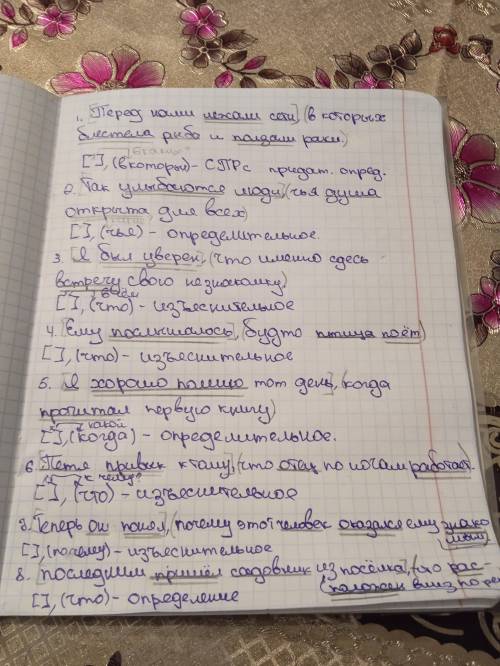 1. [Перед нами лежали сети], (в которых
блестела рыба и ползали раки)
каких?
[ ], (в которых) - СПП с придат. опред.
2. [Так улыбаются люди], (чья душа
открыта для всех)
[ ], (чья) - определительное.
3. [Я был уверен], (что именно здесь
встречу свою незнакомку)
в чём
[ ], (что) - изъеснительное
4. [Ему послышалось], (будто птица поёт)
[ ], (что) - изъеснительное
5. [Я хорошо помню тот день], (когда
прочитал первую книгу)
какой
[ ], (когда) - определительное.
6. [Петя привык к тому], (что отец по ночам работает.
к чему?
[ ], (что) - изъеснительное
Теперь он понял, (почему этот человек оказался ему знако
мым)
[ ], (почему) - изъеснительное
8. [последним пришёл садовник из посёлка], (что рас-
положен вниз по ре
[ ], (что) - определение